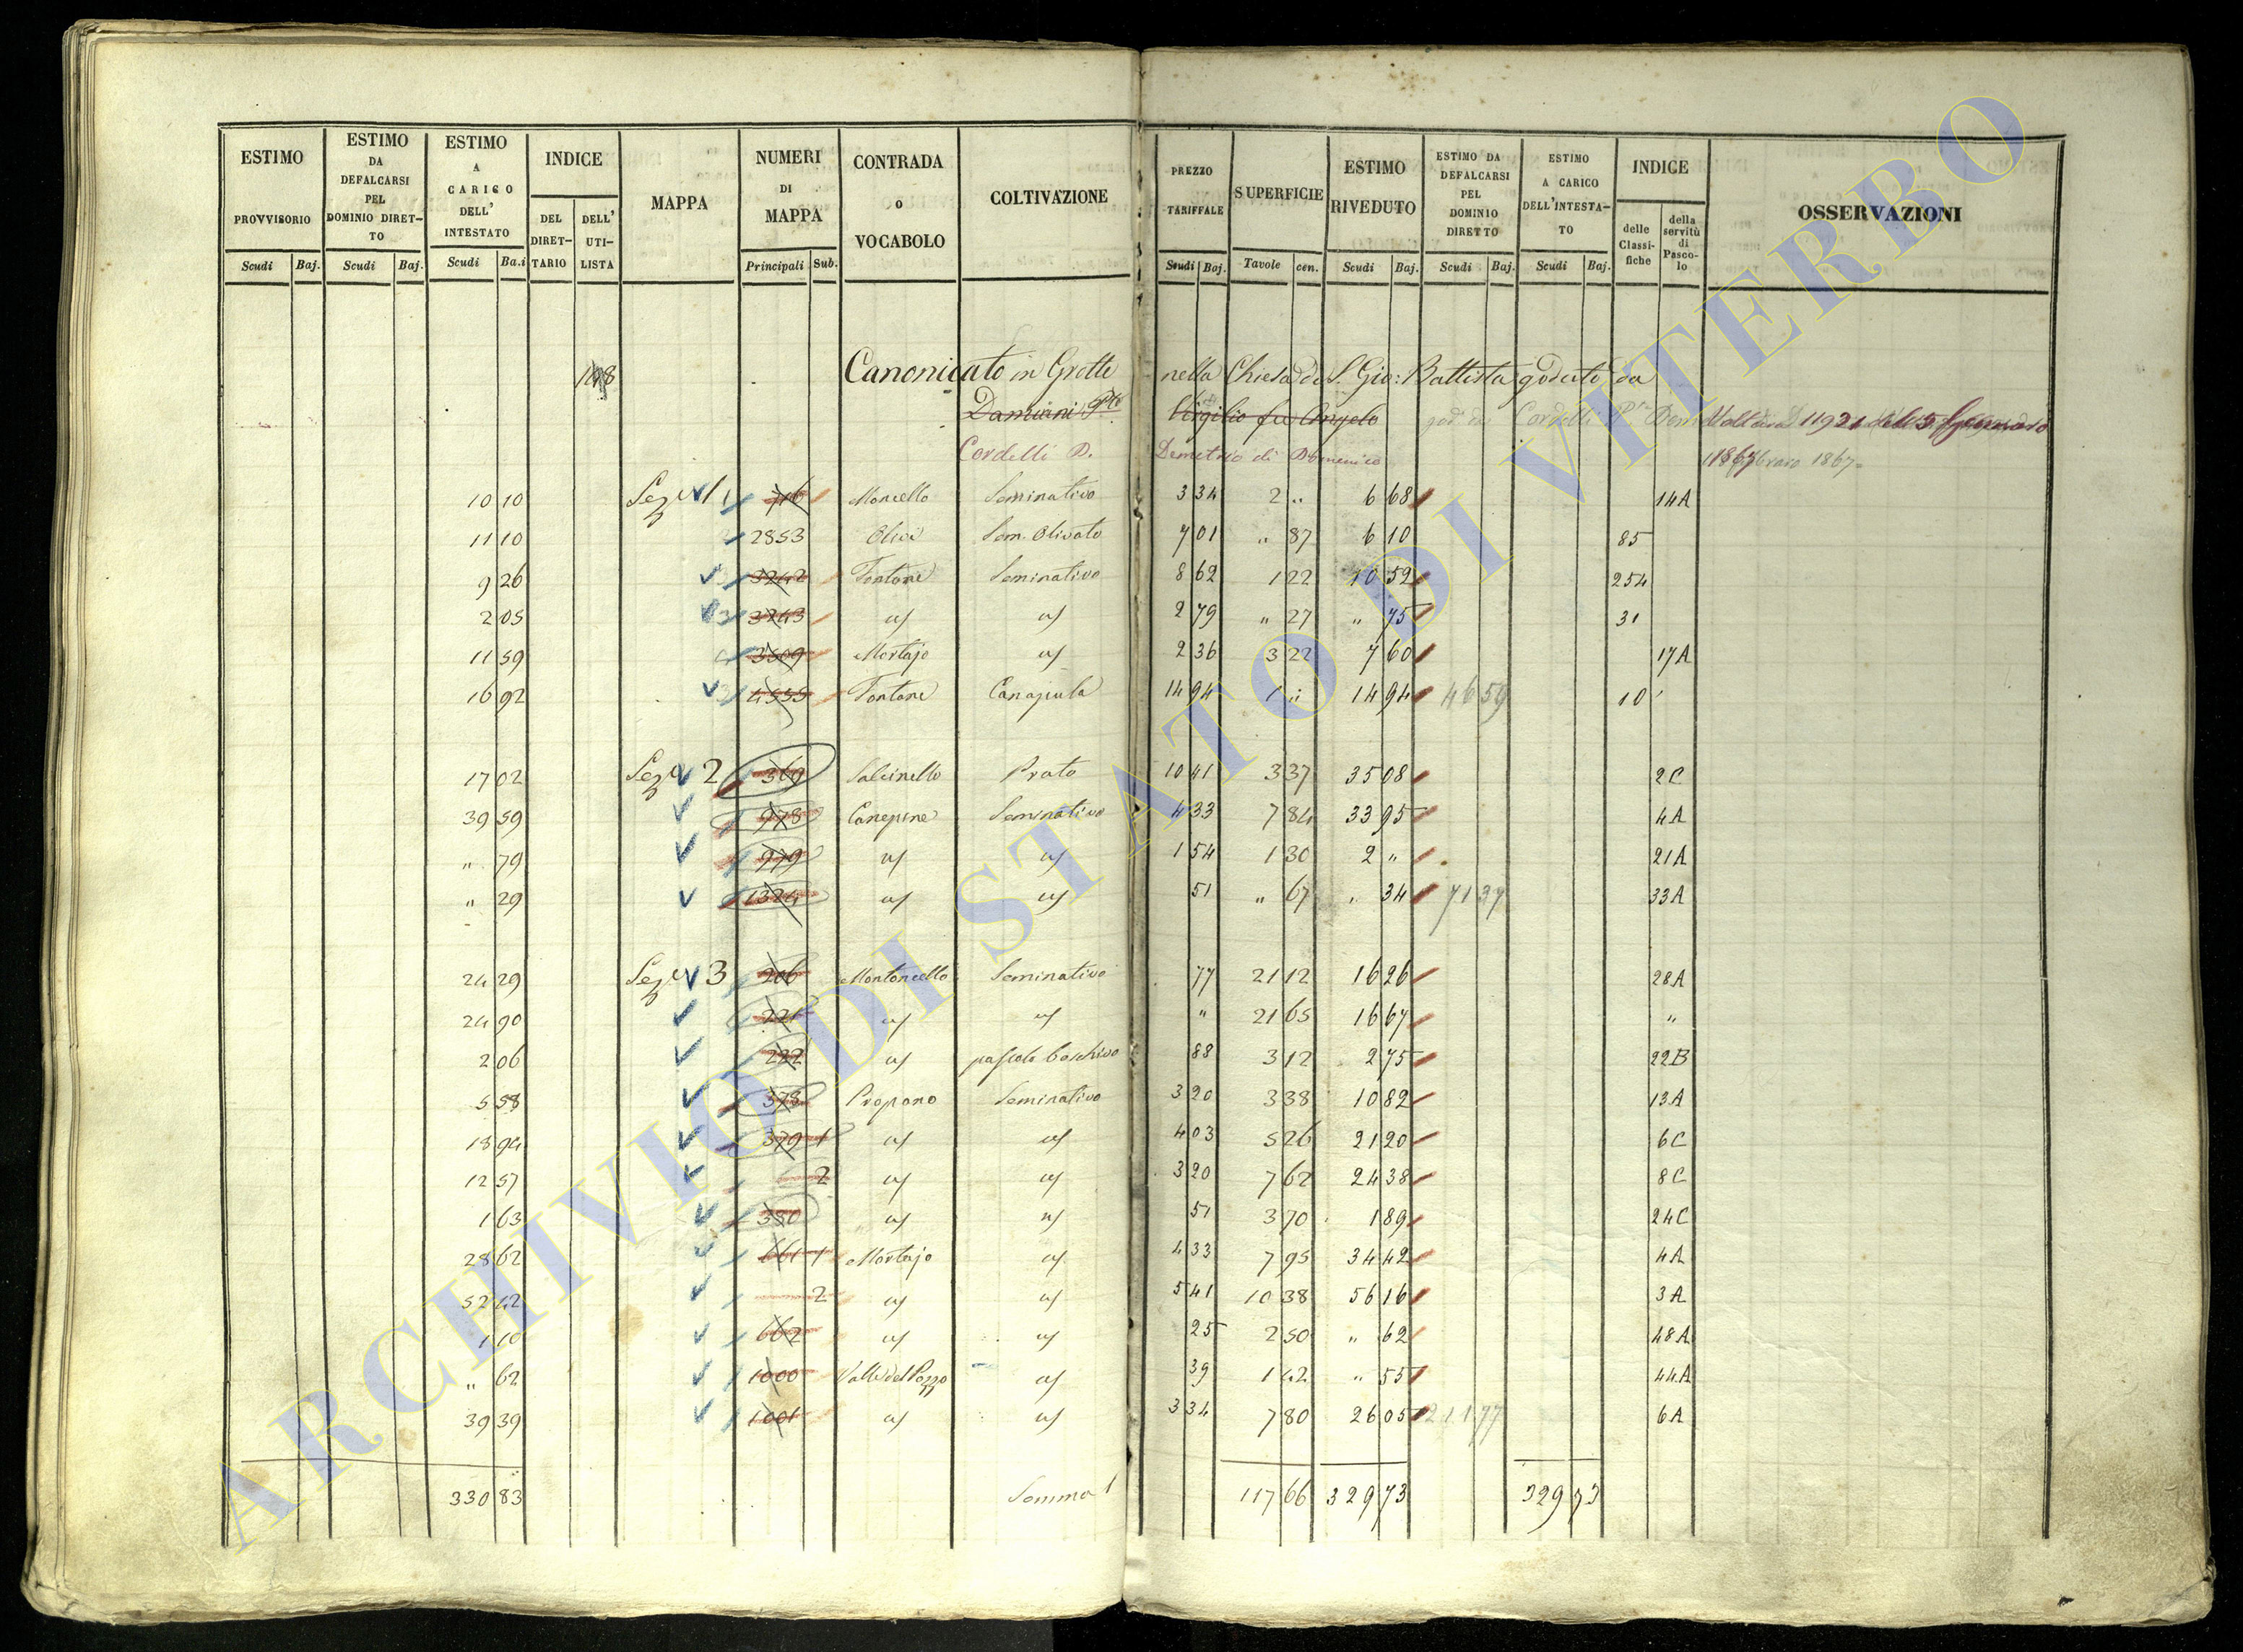 ESTIMO PROVVISORIO Scudi Baj. ESTIMO DA DEFALCARSI PEL DOMINIO DIRETTO Scudi Baj. ESTIMO A CARICO DELL'INTESTATO Scudi Ba.i INDICE DEL DIRETTARIO DELL'UTILISTA MAPPA NUMERI DI MAPPA Principali Sub. CONTRADA o VOCABOLO COLTIVAZIONE PREZZO TARIFFALE Scudi Baj. SUPERFICIE Tavole cen. ESTIMO RIVEDUTO Scudi Baj. ESTIMO DA DEFALCARSI PEL DOMINIO DIRETTO Scudi Baj. ESTIMO A CARICO DELL'INTESTATO Scudi Baj. INDICE delle Classifiche della servitù di Pascolo OSSERVAZIONI
Canonicato in Grotte nella Chiesa di S. Gio: Battista goduto da
Damiani Virgilio fu Angelo
Cordelli D. Demetrio di Domenico 1867
10 10 Sez 1 716 Moncello Seminativo 3 34 2 " 6 68 14A
11 10 2853 Sem. Olivato 7 01 " 87 6 10 85
9 26 3242 Fontane Seminativo 8 62 1 22 10 52 254
2 05 3243 2 79 " 27 " 75 31
11 59 3509 Mortajo 2 36 3 22 7 60 17A
16 92 4555 Fontane 14 94 1 " 14 94 46 59 10
17 02 Sez 2 369 Prato 10 41 3 37 35 08 2C
39 59 978 Canepine Seminativo 4 33 7 84 33 95 4A
" 79 979 1 54 1 30 2 " 21A
" 29 1324 51 " 67 " 34 71 37 33A
24 29 Sez 3 206 Montoncello Seminativo 77 21 12 16 26 28A
24 90 221 " 21 65 16 67 "
2 06 222 pascolo boschivo 88 3 12 2 75 22B
5 58 378 Propano Seminativo 3 20 3 38 10 82 13A
18 94 379 1 4 03 5 26 21 20 6C
12 57 2 3 20 7 62 24 38 8C
1 63 380 51 3 70 1 89 24C
28 62 661 1 Mortajo 4 33 7 95 34 42 4A
52 42 2 5 41 10 38 56 16 3A
1 10 662 25 2 50 " 62 48A
" 62 1000 Valle del Pozzo 39 1 42 " 55 44A
39 39 1001 3 34 7 80 26 05 211 77 6A
330 83 Somma 117 66 329 73 329 73
ARCHIVIO DI STATO DI VITERBO